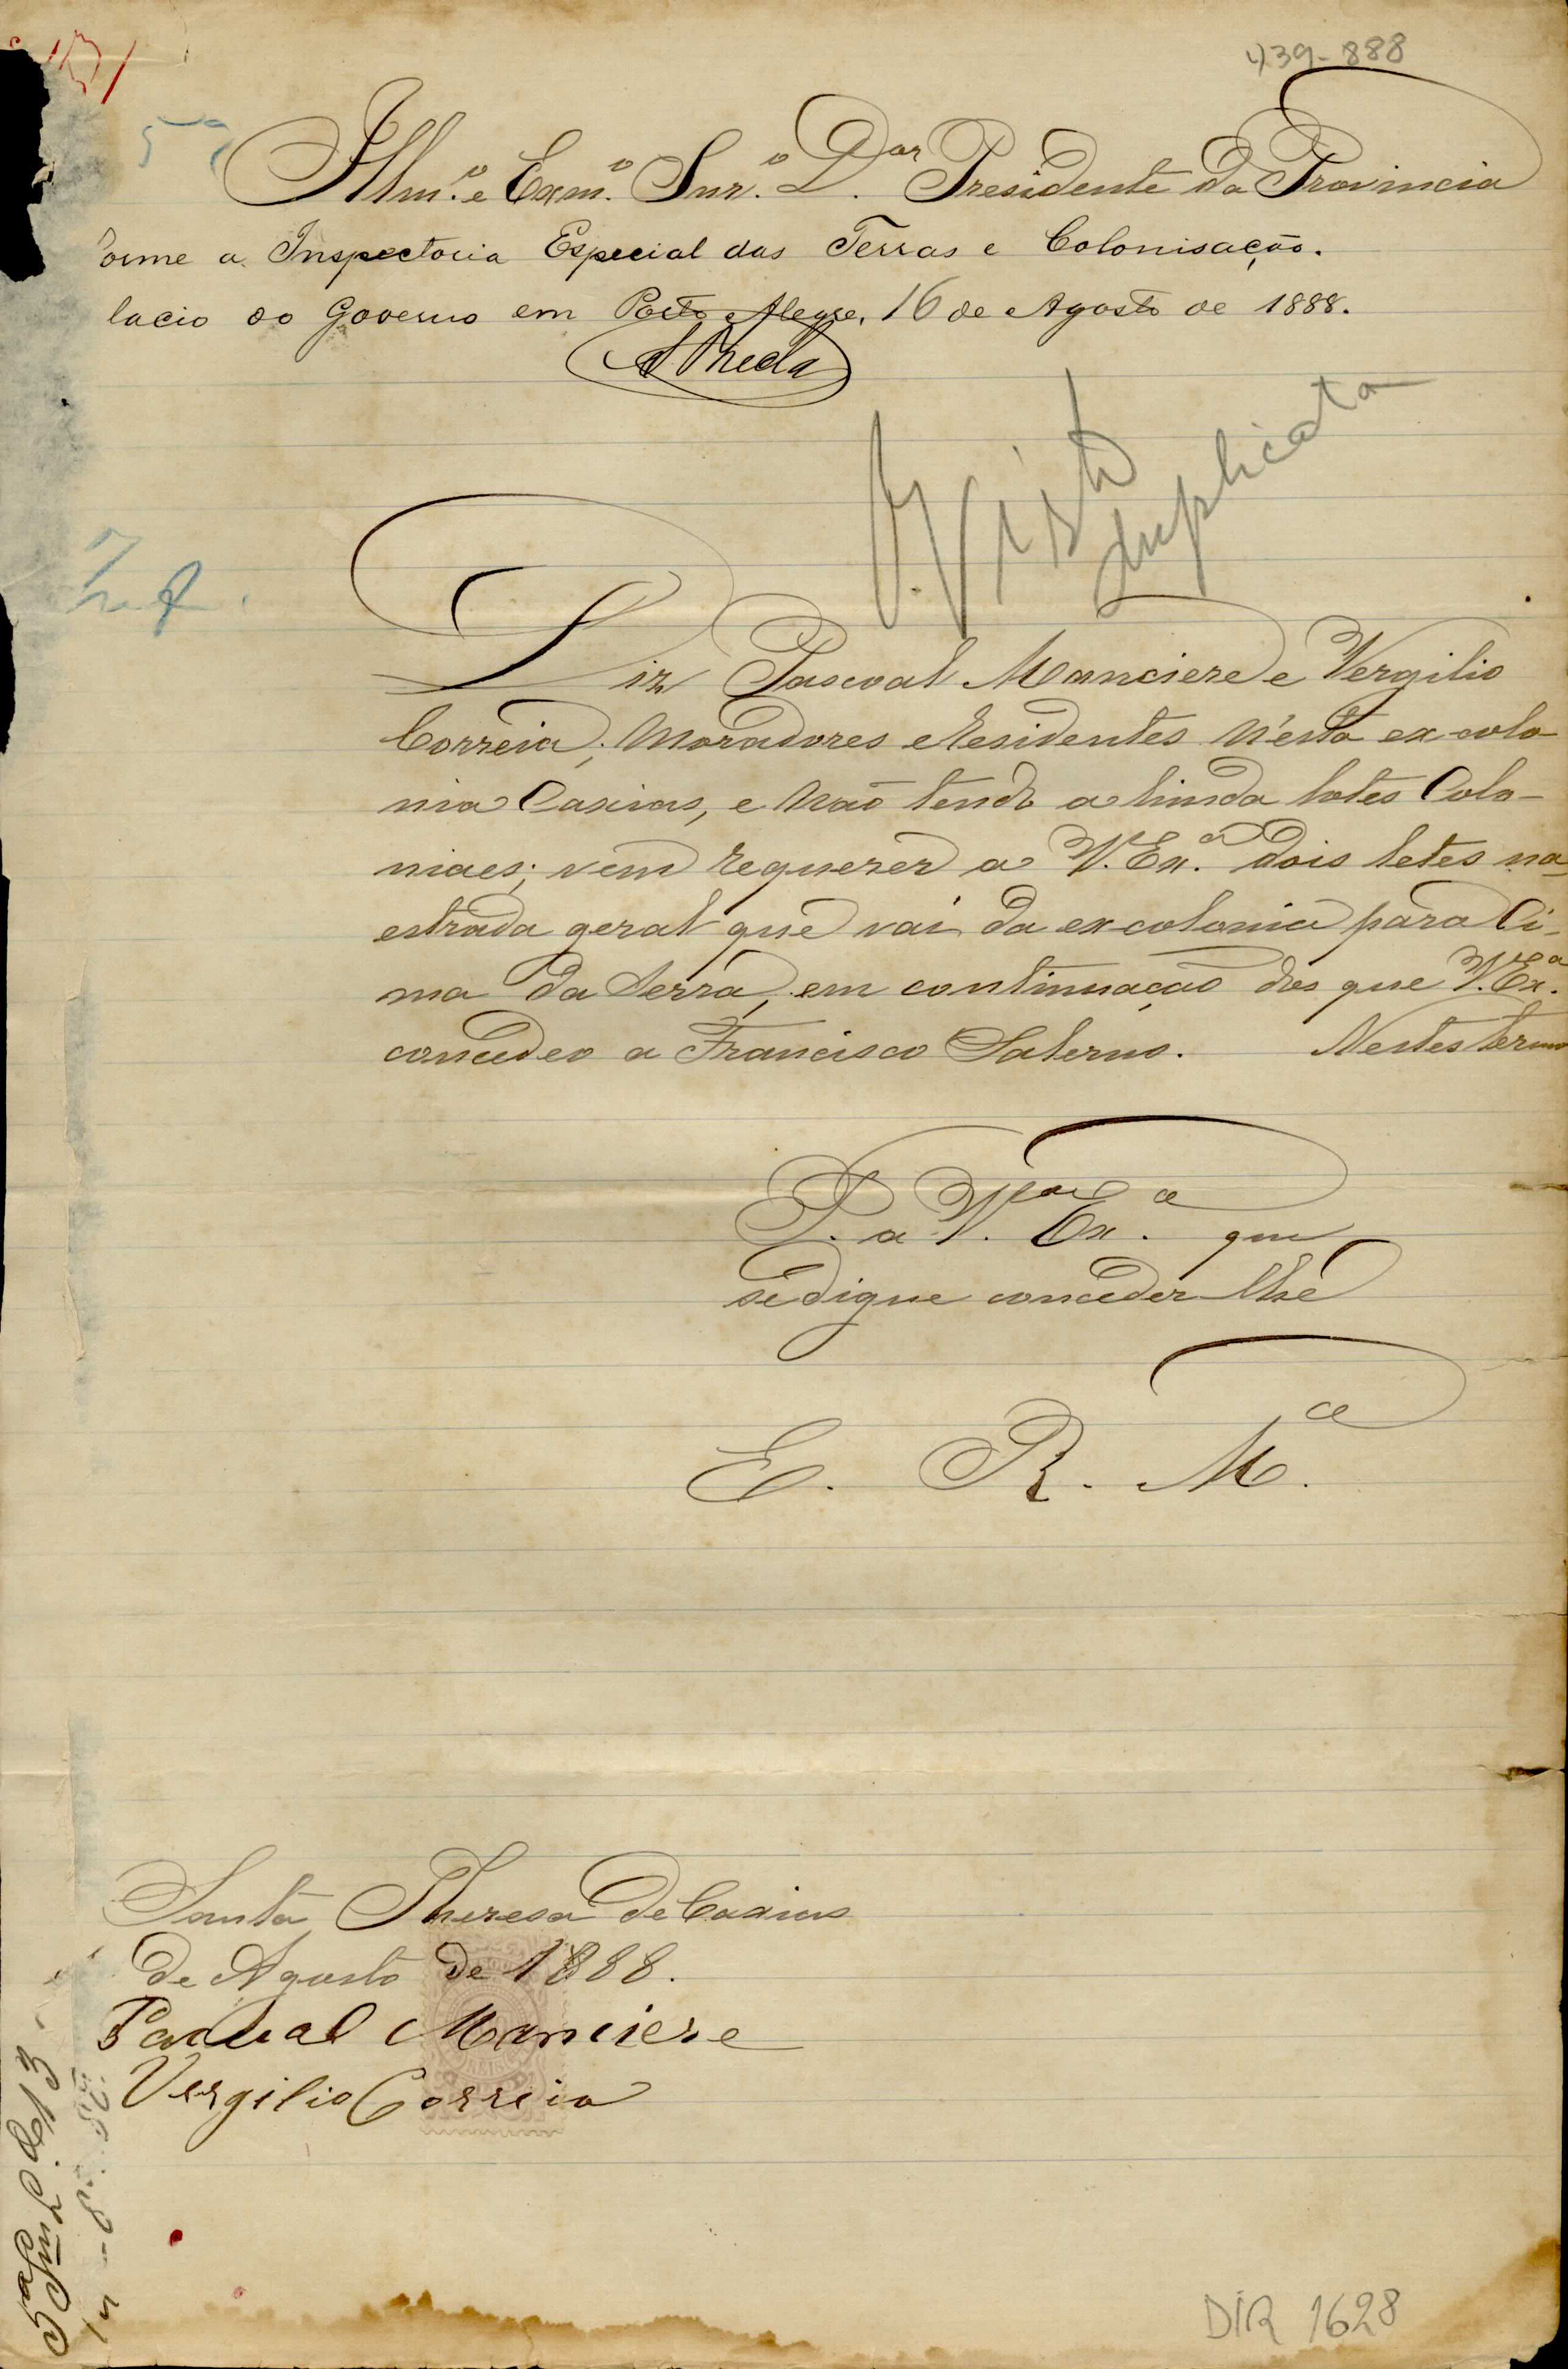 439-888
5ª
Illm.º e Exm.º Snr.º D.or Presidente da Provincia
orme a Inspectoria Especial das Terras e Colonisação.
lacio do Governo em Porto Alegre, 16 de Agosto de 1888.
Visto
duplicata
Diz Pascoal Manciere e Vergilio
Correia; Moradores e Residentes N'esta ex-colo-
nia Caxias, e Não tendo a hinda lotes Colo-
niaes; vem requerer a V. Ex.ª dois letes na
estrada geral que vai da ex-colonia para Ci-
ma da Serra, em continuação dos que V. Ex.ª
concedeo a Francisco Salerno. Nestes termo
P. a V. Ex.ª que
se digne conceder lhe
E. R. M.ce
Santa Thereza de Caxias
de Agosto de 1888.
Pascual Manciere
Vergilio Correia
DIR 1628